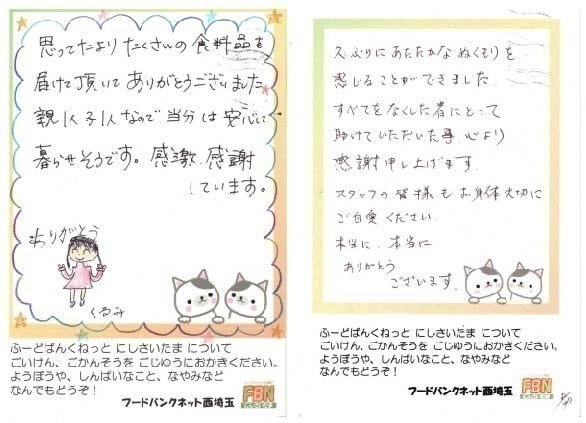 思ってたより たくさんの 食料品を
届けて頂いて ありがとうございました。
親1人 子1人なので 当分は 安心に
暮らせそうです。感激、感謝
しています。
ありがとう
くるみ
ふーどばんくねっと にしさいたま について
ごいけん、ごかんそうを ごじゆうにおかきください。
ようぼうや、しんぱいなこと、なやみなど
なんでもどうぞ！
フードバンクネット西埼玉
FBN
久ぶりにあたたかな ぬくもりを
感じることができました。
すべてをなくした者にとって
助けていただいた事、心より
感謝申し上げます。
スタッフの皆様も お身体大切に
ご自愛ください。
本当に、本当に
ありがとう
ございます。
ふーどばんくねっと にしさいたま について
ごいけん、ごかんそうを ごじゆうにおかきください。
ようぼうや、しんぱいなこと、なやみなど
なんでもどうぞ！
フードバンクネット西埼玉
FBN